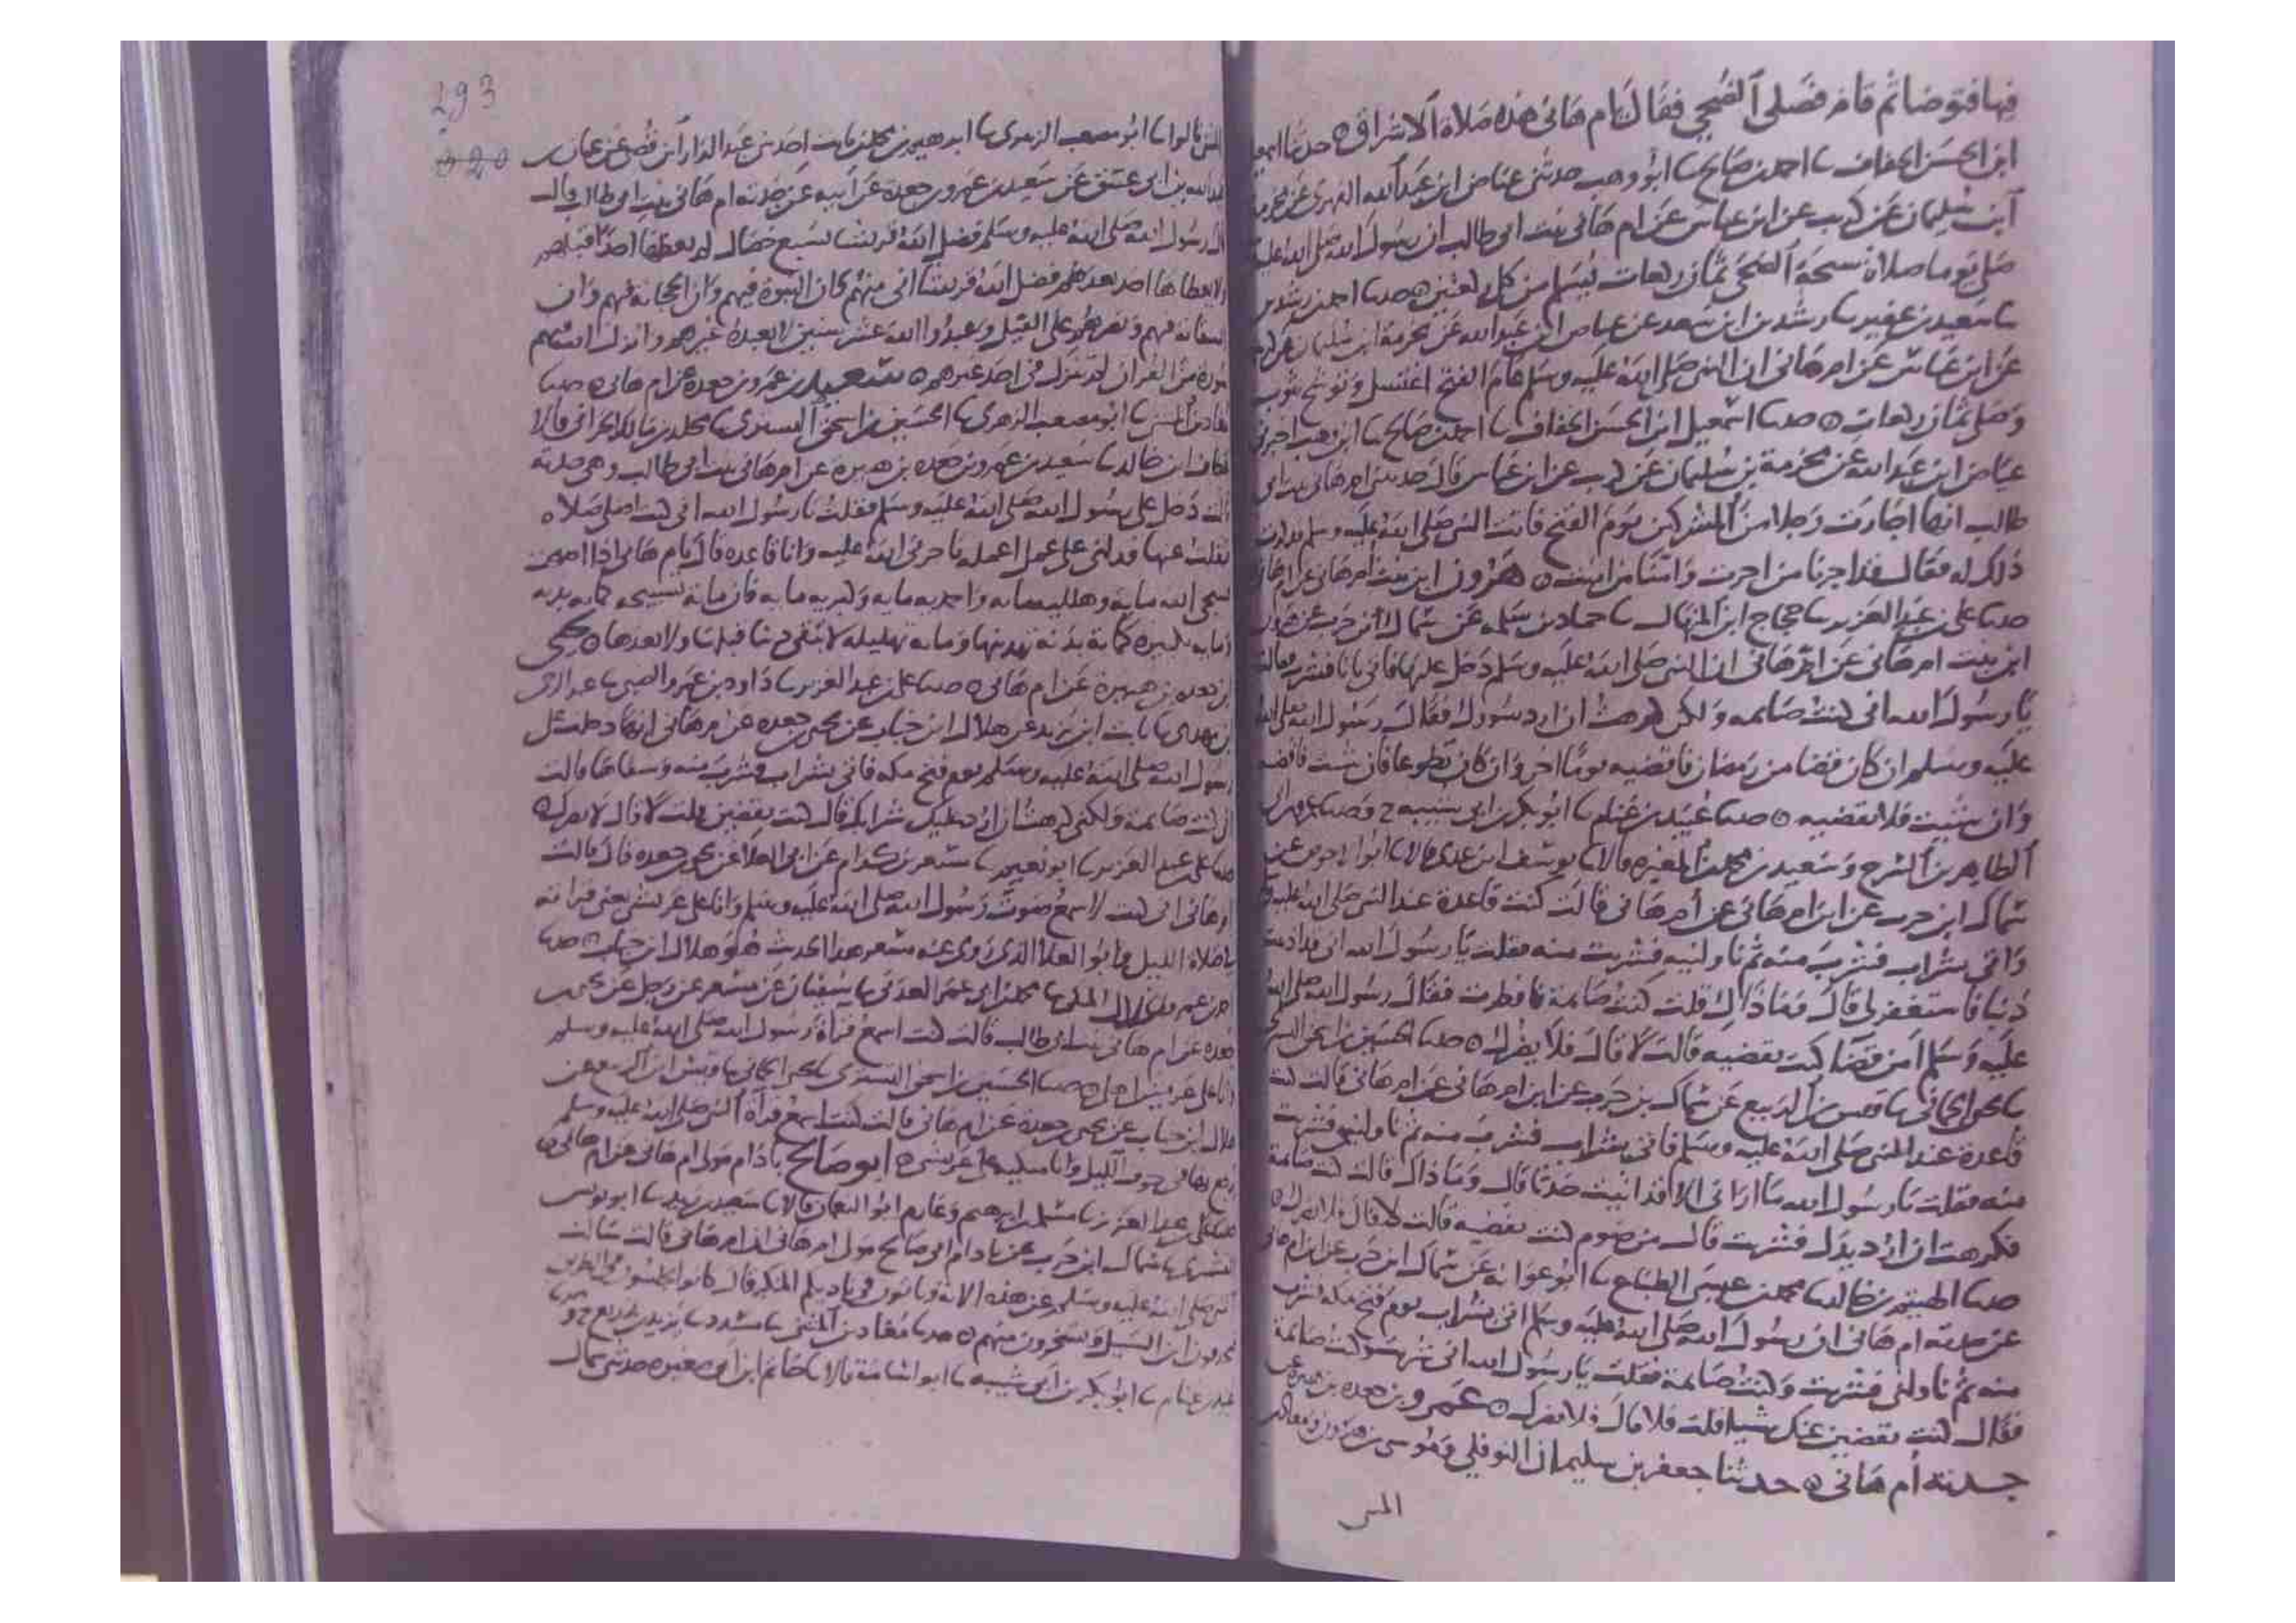 فيها فتوضا ثم قام فصلى الضحى فقال يام هانى هذه صلاة الاشراق ه حدثنا
ابن الحسن الخفاف نا احمد بن صالح نا ابن وهب حدثنى عياض ابن عبد الله الفهرى عن مخرمة
ابن سليمان عن كريب عن ابن عباس عن ام هانى بنت ابى طالب ان رسول الله صلى الله عليه
صلى يوما صلاة سبحة الضحى ثمان ركعات يسلم من كل ركعتين ه حدثنا احمد بن رشدين
نا سعيد بن عفير نا رشدين ابن سعد عن عياض ابن عبد الله عن مخرمة ابن سليمان
عن ابن عباس عن ام هانى ان النبى صلى الله عليه وسلم عام الفتح اغتسل وتوشح بثوب
وصلى ثمان ركعات ه حدثنا اسمعيل ابن الحسن الخفاف نا احمد بن صالح نا ابن وهب اخبرنى
عياض ابن عبد الله عن مخرمة بن سليمان عن كريب عن ابن عباس قال حدثتنى ام هانى بنت ابى
طالب انها اجارت رجلا من المشركين يوم الفتح فاتت النبى صلى الله عليه وسلم فذكرت
ذلك له فقال قد اجرنا من اجرت وامنا من امنت ه هرون ابن بنت ام هانى عن ام هانى
حدثنا على بن عبد العزيز نا حجاج ابن المنهال نا حماد بن سلمه عن سماك ابن حرب عن هرون
ابن بنت ام هانى عن ام هانى ان النبى صلى الله عليه وسلم دخل عليها فاتى بانا فشرب فقالت
يا رسول الله انى كنت صايمه ولكن كرهت ان ارد سورك فقال رسول الله صلى الله
عليه وسلم ان كان قضا من رمضان فاقضيه يوما اخر وان كان تطوعا فان شيت فاقضه
وان شيت فلا تقضيه ه حدثنا عبيد بن غنام نا ابو بكر بن ابى شيبه ح وحدثنا
الطاهر بن السرح وسعيد بن محمد بن المغيرة قالا نا يوسف ابن عدى قالا نا ابو الاحوص عن
سماك ابن حرب عن ابن ام هانى عن ام هانى قالت كنت قاعدة عند النبى صلى الله عليه
واتى بشراب فشرب منه ثم ناولنيه فشربت منه فقلت يا رسول الله انى قد اذنبت
ذنبا فاستغفر لى قال وما ذاك قلت كنت صايمة فافطرت فقال رسول الله صلى الله
عليه وسلم امن قضا كنت تقضيه قالت لا قال فلا يضرك ه حدثنا الحسين بن اسحق التسترى
نا يحيى الحمانى نا قيس بن الربيع عن سماك بن حرب عن ابن ام هانى عن ام هانى قالت كنت
قاعدة عند النبى صلى الله عليه وسلم فاتى بشراب فشرب منه ثم ناولنيه فشربت
منه فقلت يا رسول الله ما ارانى الا قد اتيت حدثا قال وما ذاك قالت كنت صايمة
فكرهت ان ارد يدك فشربت قال من صوم كنت تقضيه قالت لا قال فلا يضرك ه
حدثنا الهيثم بن خالد نا محمد بن عيسى الطباع نا ابو عوانه عن سماك ابن حرب عن ابن ام هانى
عن جدته ام هانى ان رسول الله صلى الله عليه وسلم اتى بشراب يوم فتح مكه فشرب
منه ثم ناولنى فشربت وكنت صايمة فقلت يا رسول الله انى شربت وكنت صايمة
فقال كنت تقضين عنك شيا قلت لا قال فلا يضرك ه عمرو بن جعده بن هبيرة عن
جدته ام هانى ه حدثنا جعفر بن سليمان النوفلى وموسى بن هرون ومعاذ بن
المثنى
293
المثنى قالوا نا ابو مصعب الزهرى نا ابرهيم بن محمد بن ثابت احد بنى عبد الدار ابن قصى عن عثمن
عبد الله بن ابى عتيق عن سعيد بن عمرو بن جعدة عن ابيه عن جدته ام هانى بنت ابى طالب قالت
قال رسول الله صلى الله عليه وسلم فضل الله قريشا بسبع خصال لم يعطها احدا قبلهم
ولا يعطاها احد بعدهم فضل الله قريشا انى منهم وان النبوة فيهم وان الحجابة فيهم وان
السقاية فيهم ونصرهم على الفيل وعبدوا الله عشر سنين لا يعبده غيرهم وانزل الله فيهم
سورة من القران لم تنزل فى احد غيرهم ه سعيد بن عمرو بن جعدة عن ام هانى ه حدثنا
معاذ بن المثنى نا ابو مصعب الزهرى نا الحسين بن اسحق التسترى نا مخلد بن مالك الحرانى قالا
عطاف ابن خالد نا سعيد بن عمرو بن جعده بن هبيرة عن ام هانى بنت ابى طالب وهى جدته
قالت دخل على رسول الله صلى الله عليه وسلم فقلت يا رسول الله انى كنت اصلى صلاة
ثقلت عنها فدلنى على عمل اعمله ياجرنى الله عليه وانا قاعده قال يام هانى اذا اصبحت
سبحى الله مايه وهلليه مايه واحمديه مايه وكبريه مايه فان ماية تسبيحه كمايه بدنه
ومايه تكبيره كماية بدنة تهدينها وماية تهليله لا تبقى ذنبا قبلها ولا بعدها ه يحيى
بن جعده بن هبيرة عن ام هانى ه حدثنا على بن عبد العزيز نا داود بن عمرو الضبى نا عبد الرحمن
بن مهدى نا ثابت ابن يزيد عن هلال ابن خباب عن يحيى بن جعده عن ام هانى انها دخلت على
رسول الله صلى الله عليه وسلم يوم فتح مكه فاتى بشراب فشرب منه وسقاها قالت
انى كنت صايمة ولكنى كرهت ان ارد عليك شرابك قال كنت تقضين قلت لا قال لا يضرك ه
حدثنا على بن عبد العزيز نا ابو نعيم نا مسعر بن كدام عن ابى العلا عن يحيى بن جعده قال قالت
ام هانى انى كنت لاسمع صوت رسول الله صلى الله عليه وسلم وانا على عريشى يعنى قراته
فى صلاة الليل وابو العلا الذى روى عنه مسعر هذا الحديث هو هلال ابن خباب ه حدثنا
احمد بن عمرو الخلال المكى نا محمد بن ابى عمر العدنى نا سفيان عن مسعر عن رجل عن يحيى بن
جعده عن ام هانى بنت ابى طالب قالت كنت اسمع قراة رسول الله صلى الله عليه وسلم
وانا على عريش اهلى ه حدثنا الحسين بن اسحق التسترى نا يحيى الحمانى نا قيس ابن الربيع عن
هلال ابن خباب عن يحيى بن جعدة عن ام هانى قالت كنت اسمع قراة النبى صلى الله عليه وسلم
يرفع بها فى جوف الليل وانا متكيه على عريشى ه ابو صالح باذام مولى ام هانى عن ام هانى ه
حدثنا على بن عبد العزيز نا مسلم بن ابرهيم وعارم ابو النعمان قالا نا سعيد بن زيد نا ابو يونس
القشيرى نا سماك ابن حرب عن باذام ابى صالح مولى ام هانى ان ام هانى قالت سالت
النبى صلى الله عليه وسلم عن هذه الاية وتاتون فى ناديكم المنكر قال كانوا يجلسون فى الطريق
فيحذفون ابن السبيل ويسخرون منهم ه حدثنا معاذ بن المثنى نا مسدد نا يزيد بن زريع ح وحدثنا
عبيد بن غنام نا ابو بكر بن ابى شيبه نا ابو اسامة قالا نا حاتم ابن ابى صغيره حدثنى سماك